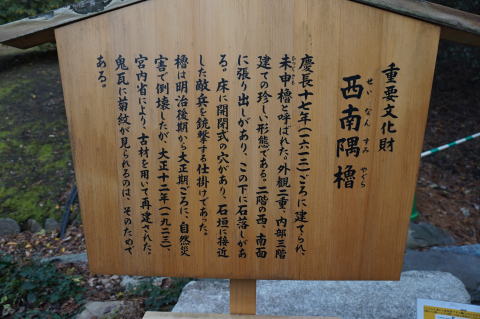 重要文化財
西南隅櫓
せいなんすみやぐら
慶長十七年(一六一二)ごろに建てられ、
未申櫓と呼ばれた。外観二重、内部三階
建ての珍しい形態である。二階の西、南面
に張り出しがあり、この下に石落しがあ
る。床に開閉式の穴があり、石垣に接近
した敵兵を銃撃する仕掛けであった。
櫓は明治後期から大正期ごろに、自然災
害で倒壊したが、大正十二年(一九二三)、
宮内省により、古材を用いて再建された。
鬼瓦に菊紋が見られるのは、そのためで
ある。